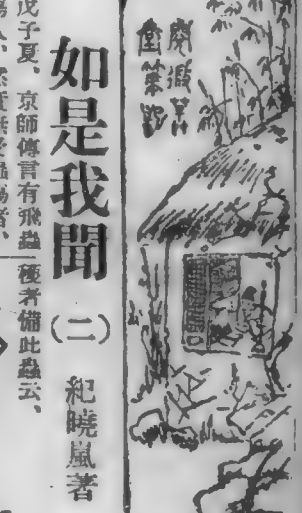 閱微草
堂筆記
如是我聞
（二）
紀曉嵐著
戊子夏、京師傳言有飛蟲
種者備此蟲云、